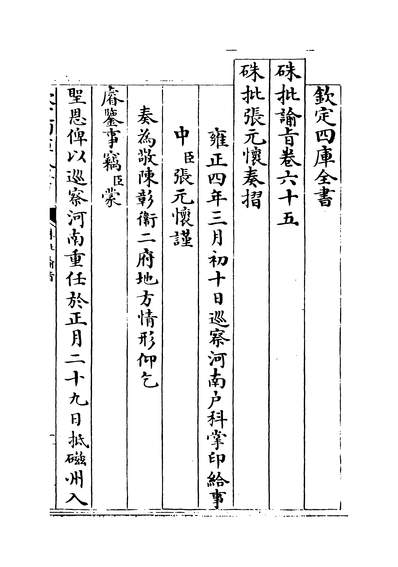 欽定四庫全書
硃批諭旨卷六十五
硃批張元懷奏摺
雍正四年三月初十日巡察河南户科掌印給事
中臣張元懷謹
奏為敬陳彰衛二府地方情形仰乞
睿鑒事竊臣蒙
聖恩俾以巡察河南重任於正月二十九日抵磁州入